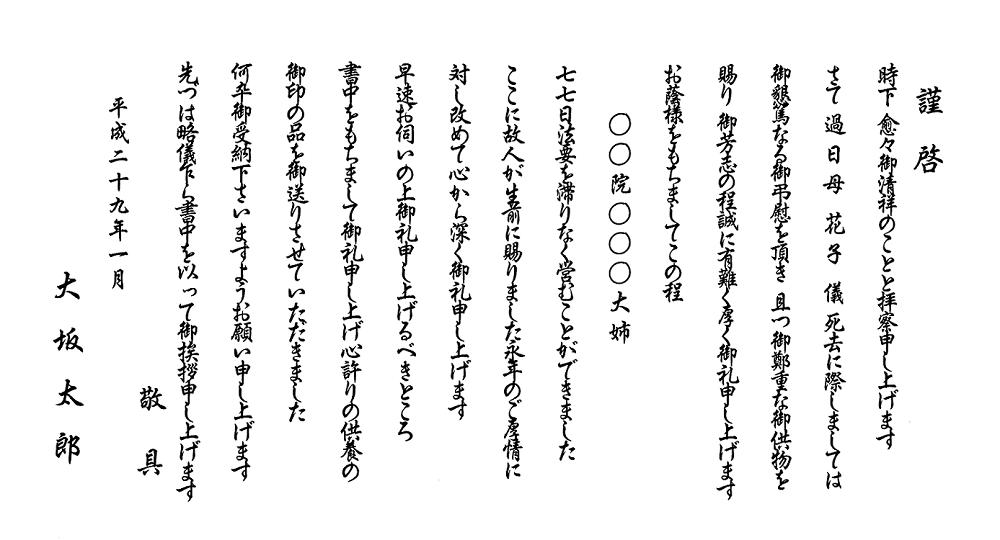 謹啓
時下 愈々御清祥のことと拝察申し上げます
さて 過日母 花子 儀 死去に際しましては
御懇篤なる御弔慰を頂き 且つ御鄭重な御供物を
賜り 御芳志の程誠に有難く厚く御礼申し上げます
お蔭様をもちましてこの程
〇〇院〇〇〇大姉
七七日法要を滞りなく営むことができました
ここに故人が生前に賜りました永年のご厚情に
対し改めて心から深く御礼申し上げます
早速お伺いの上御礼申し上げるべきところ
書中をもちまして御礼申し上げ心許りの供養の
御印の品を御送りさせていただきました
何卒御受納下さいますようお願い申し上げます
先づは略儀乍ら書中を以って御挨拶申し上げます
敬具
平成二十九年一月
大坂太郎